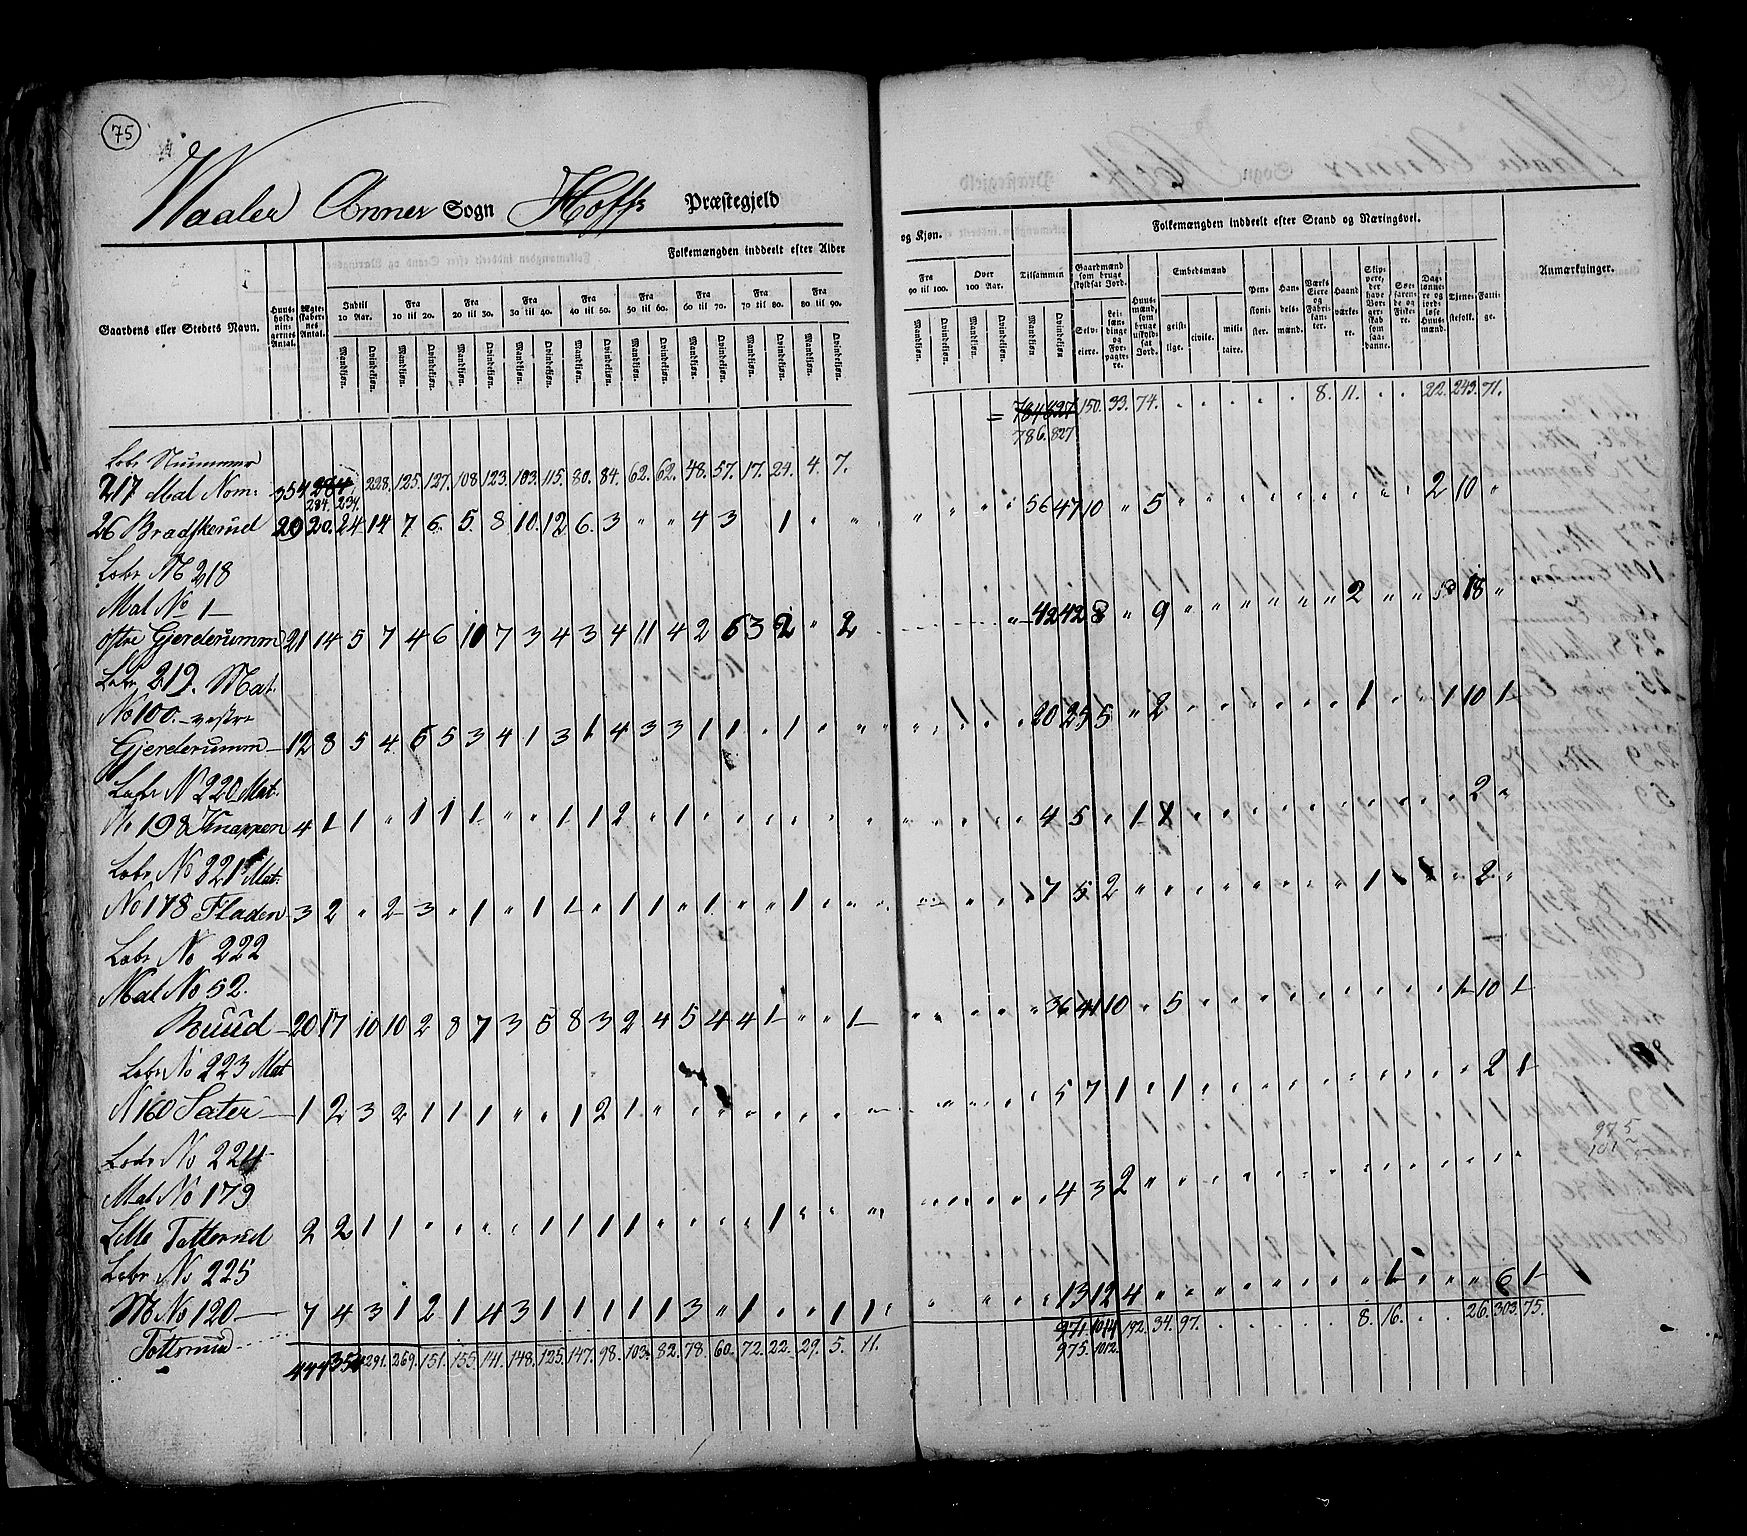 75
Waaler Anner Sogn Hoffs Præstegjeld
Gaardens eller Stedets Navn.
Huusholdningernes Antal.
Ægteskabernes Antal.
Folkemængden inddeelt efter Alder
og Kjøn.
Folkemængden inddeelt efter Stand og Næringsvei.
Indtil 10 Aar.
Fra 10 til 20.
Fra 20 til 30.
Fra 30 til 40.
Fra 40 til 50.
Fra 50 til 60.
Fra 60 til 70.
Fra 70 til 80.
Fra 80 til 90.
Fra 90 til 100.
Over 100 Aar.
Tilsammen
Mandkjøn. Qvindekjøn.
Gaardmænd som bruge skyldsat Jord.
Selveiere.
Leilændinge og Forpagtere.
Huusmænd, som bruge uskyldsat Jord.
Embedsmænd
geistlige.
civile.
militaire.
Pensionister.
Handelsmænd.
Værks Eiere og Fabrikanter.
Haandværkere.
Skippere, der have Borgerskab som saadanne.
Søefarende og Fiskere.
Dagslønnere og jordløse Huusmænd.
Tjenestefolk.
Fattige.
Anmærkninger.
= 784 827 150. 33. 74. 8. 11. 22. 243. 71.
786. 827
Lobe Nummer
217 Mat Nom: 354 284 228. 125. 127. 108 123. 103. 115. 80. 84. 62. 62. 48. 57. 17. 24. 4. 7.
284. 234.
26 Bradskerud 29 20. 24. 14 7 6. 5. 8 10. 12 6. 3 " " 4 3 1 " " 56 47 10 " 5 2 10 "
Lobe N 218
Mat No 1
østre Gjerderumm 21 14 5 7 4 6 10 7 3 4 3 4 11 4 2 6 3 2 " 2 42 42 8 " 9 2 18 "
Lobe 219. Mat
No 100. vestre
Gjerderumm 12 8 5 4 6 5 3 4 1 3 1 4 3 3 1 1 . 1 20 25 5 " 2 1 1 10 1
Lobe N 220 Mat.
No 198 Knappen 4 1 1 " 1 1 1 " " 1 1 2 " 1 4 5 " 1 1 2 "
Lobe No 221 Mat.
No 178 Fladen 3 2 " 2 3 " 1 " 1 1 " 1 1 " 1 " " 1 7 5 2 1 2 "
Lobe No 222
Mat No 52.
Buud 20 17 10 10 2 8 7 3 5 8 3 2 4 5 4 4 1 " " 1 36 41 10 " 5 1 10 1
Lobe No 223 Mat
N 160 Sater 1 2 3 2 1 1 1 " " 1 2 1 5 7 1 " 1 2 1
Lobe No 224
Mat No 179
Lille Totterud 2 2 1 1 " " " " 1 1 1 1 " " " " 1 4 3 2
Lobe No 225
M No 120 7 4 3 1 2 1 4 3 1 1 1 1 1 3 " 1 " " 1 1 13 12 4 1 6 1
Totterud
447 354 291. 269. 151. 155. 141. 148. 125. 147. 98. 103. 82. 78. 60. 72. 22. 29. 5. 11. 971. 1014 192. 34. 97. 8. 16. 26. 303. 75.
975. 1012.
975